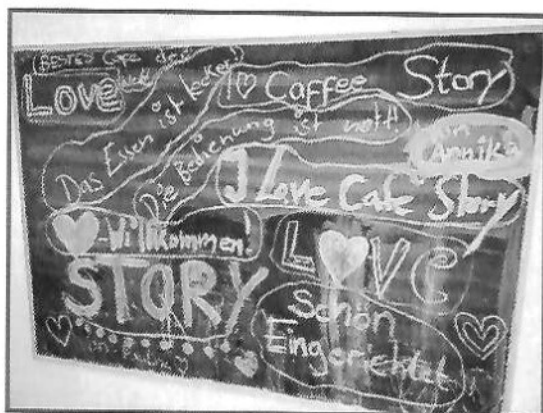 Bestes Cafe der
Love
I ♡ Caffee Story
Das Essen ist lecker!
Die Bedienung ist nett!
von
Annika
I Love Cafe Story
♡-Willkommen!
LOVE
STORY
Schön
Eingerichtet